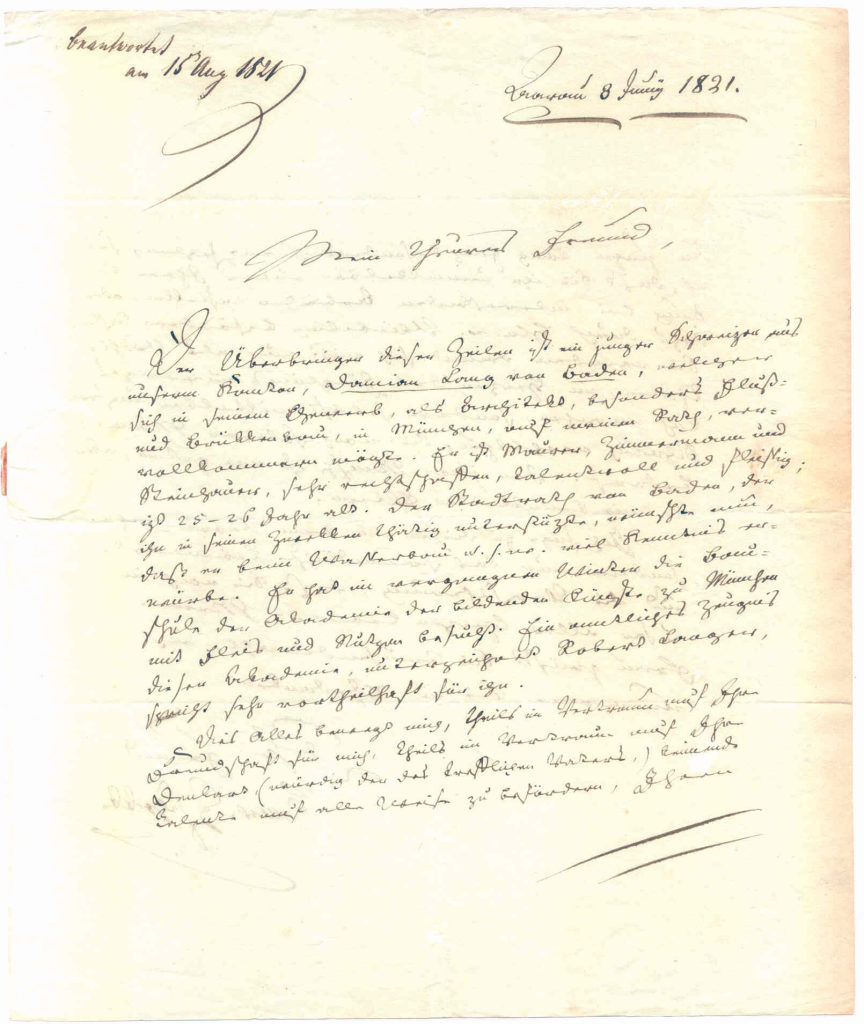 beantwortet
am 15 Aug 1821
Aarau 8 Juny 1821.
Mein theurer Freund,
Der Überbringer dieser Zeilen ist ein junger Schweizer aus
unserm Kanton, Damian Lang von Baden, welcher
sich in seinem Gewerb, als Architekt, besonders Fluß-
und Brükkenbau, in München, auf meinen Rath, ver-
vollkommnen möchte. Er ist Maurer, Zimmermann und
Steinhauer, sehr rechtschaffen, talentvoll und fleißig;
izt 25-26 Jahr alt. Der Stadtrath von Baden, der
ihn in seinen Zwekken thätig unterstüzte, wünschte nun,
daß er beim Wasserbau u. s. w. viel Kenntnis er-
würbe. Er hat im vergangnen Winter die Bau-
schule der Akademie der bildenden Künste zu München
mit Fleis und Nutzen besucht. Ein amtliches Zeugnis
dieser Akademie, unterzeichnet Robert Langer,
spricht sehr vortheilhaft für ihn.
Dies Alles bewegt mich, theils im Vertraun auf Ihre
Freundschaft für mich, theils im Vertraun auf Ihre
Denkart (würdig der des trefflichen Vaters,) keimende
Talente auf alle Weise zu befördern, Ihnen